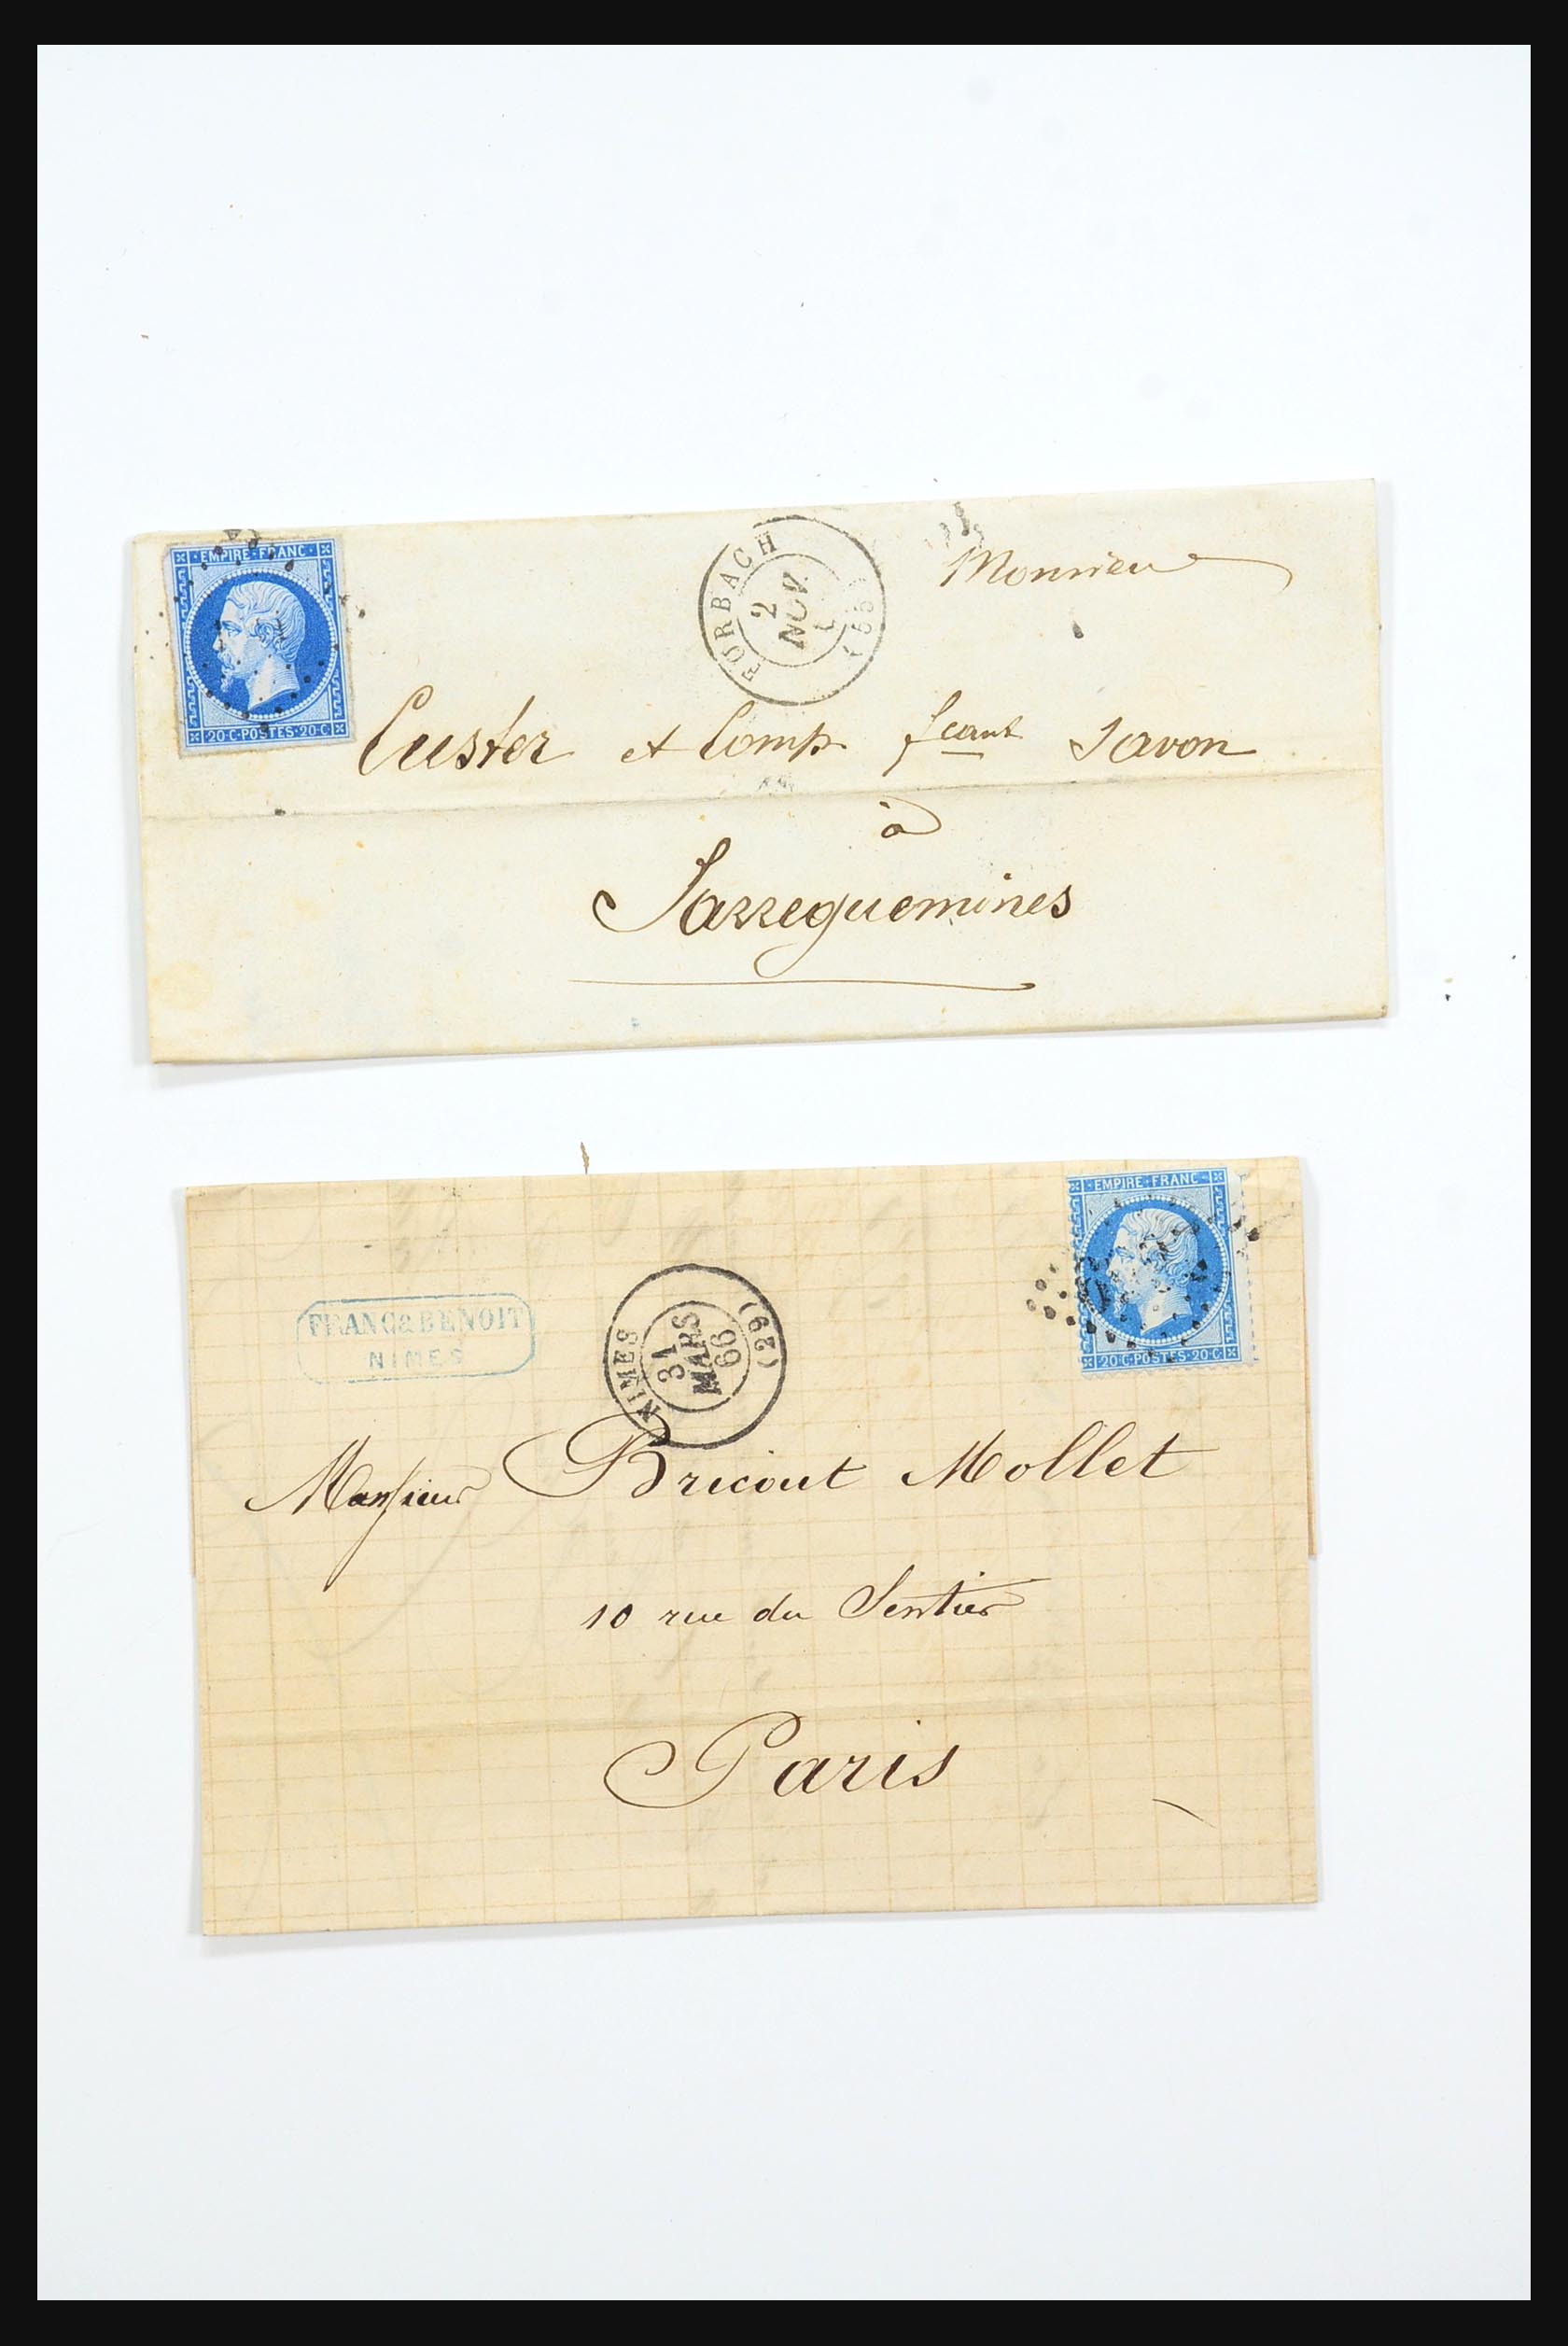 EMPIRE FRANC
20 C POSTES 20 C
FORBACH (55)
2
NOV
Monsieur
Custer et Comp. fcant Savon
à
Sarreguemines
EMPIRE FRANC
20 C POSTES 20 C
FRANC & BENOIT
NIMES
NIMES (29)
31
MARS
66
Monsieur Bricout Mollet
10 rue du Sentier
Paris